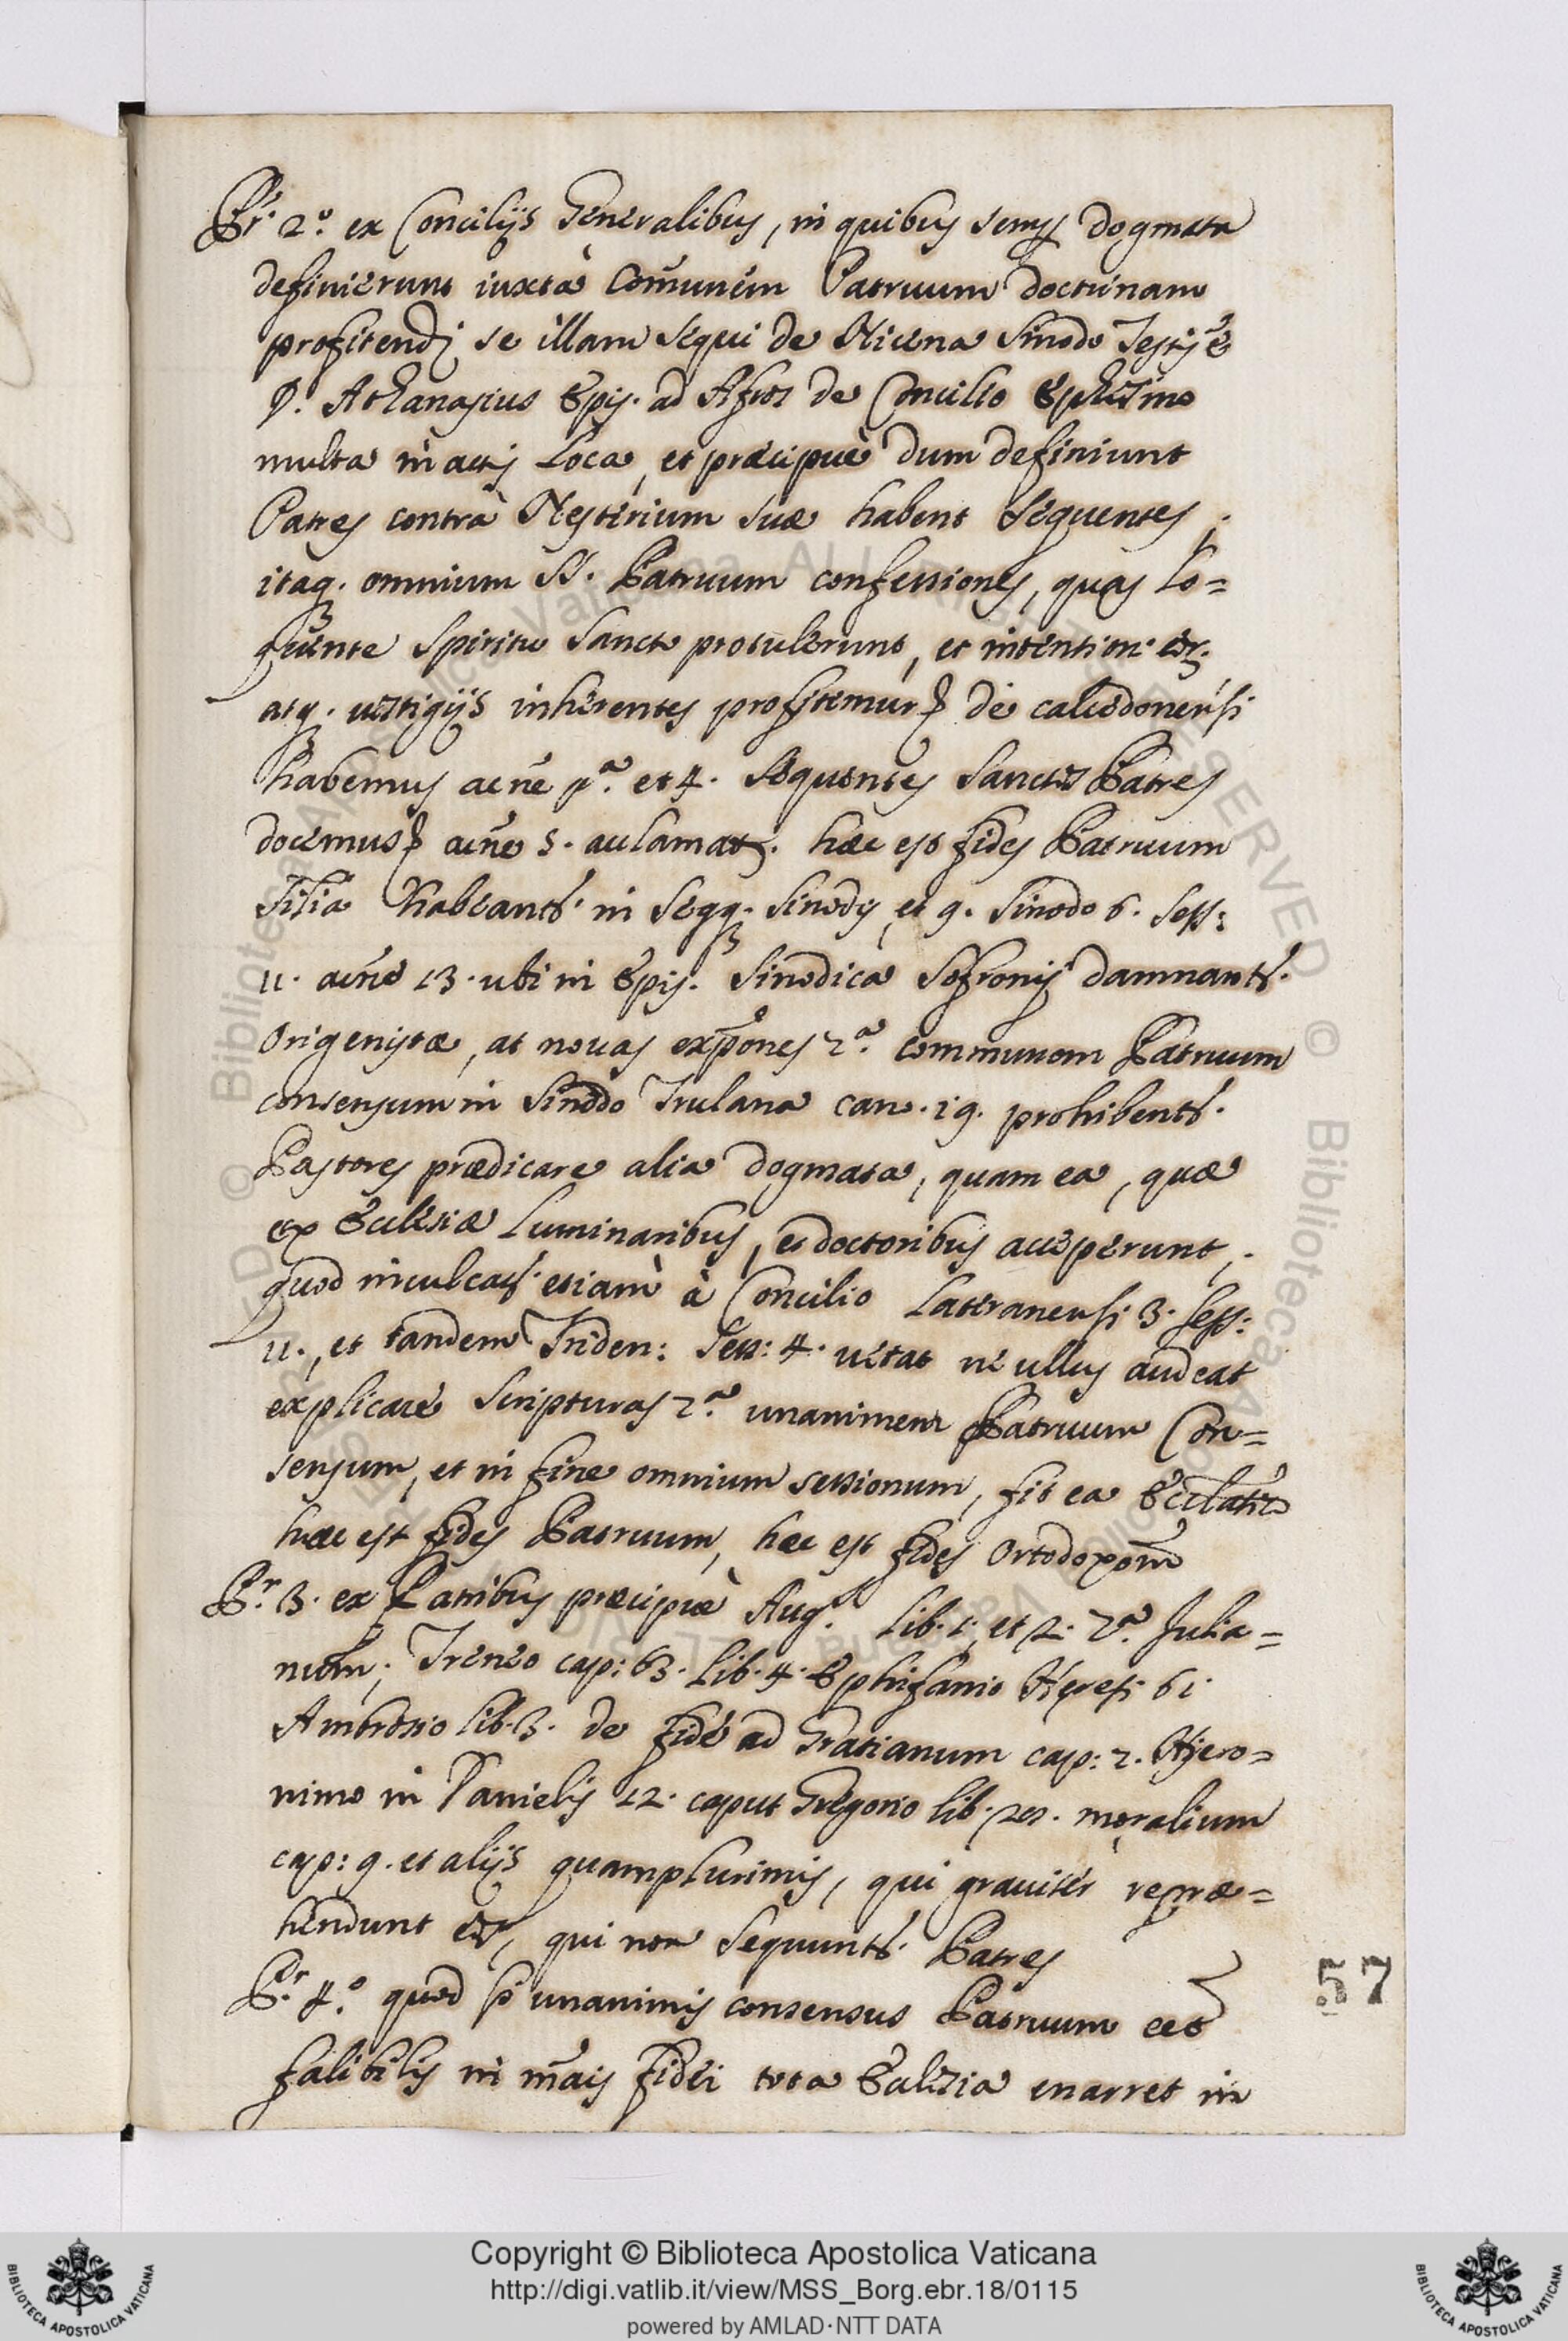 Pr. 2.º ex Concilijs Generalibus, in quibus semp dogmata
definierunt iuxtà Comunem Patruum doctrinam
profitendi se illam sequi de Nicena Sinodo Testis ē
D. Athanasius Epis. ad Afros de Concilio Ephesino
multa in actis loca, et præcipuè dum definiunt
Patres contrà Nestorium suæ habent sequentes,
itaq. omnium SS. Patruum confessiones, quas lo=
quente Spiritu Sancto protulerunt, et intention. eor.
atq. uestigijs inherentes profitemur de calcedonensi
habemus acñe pª. et 4. Sequentes Sanctos Patres
docemus acñe 5. aclamat. hæc est fides Patruum
similia habeantr. in seqq. Sinodis, et 9. Sinodo 6. sess:
11. acñe 13. ubi in Epis. Sinodica Sofronij damnantr.
Origenistæ, at nouas expones 2ª. communem Patruum
consensum in Sinodo Trulana can. 19. prohibentr.
Pastores prædicare alia dogmata, quam ea, quæ
ex Eclesiæ luminaribus, et doctoribus acceperunt,
quod inculcatr. etiam à Concilio Lateranensi 3. sess:
11., et tandem Triden: sess: 4. uetat ne ullus audeat
explicare Scripturas 2ª. unanimem Patruum Con=
sensum, et in fine omnium sessionum, fit ea
hæc est fides Patruum, hæc est fides Ortodoxorum
Pr. 3. ex Patribus præcipuè Aug. lib. 1. et 2. 2ª. Julia=
num, Ireneo cap: 63. lib. 4. Ephifanio Heresi 61.
Ambrosio lib. 3. de fide ad Gratianum cap: 2. Hiero=
nimo in Danielis 12. caput Gregorio lib. moralium
cap: 9. et alijs quamplurimis, qui grauiter repræ=
hendunt eos, qui non sequuntr. Patres
Pr. 4.º quod si unanimis consensus Patruum eēt
falibilis in mãis fidei tota Eclesia enarret in
57
Copyright © Biblioteca Apostolica Vaticana
http://digi.vatlib.it/view/MSS_Borg.ebr.18/0115
powered by AMLAD·NTT DATA